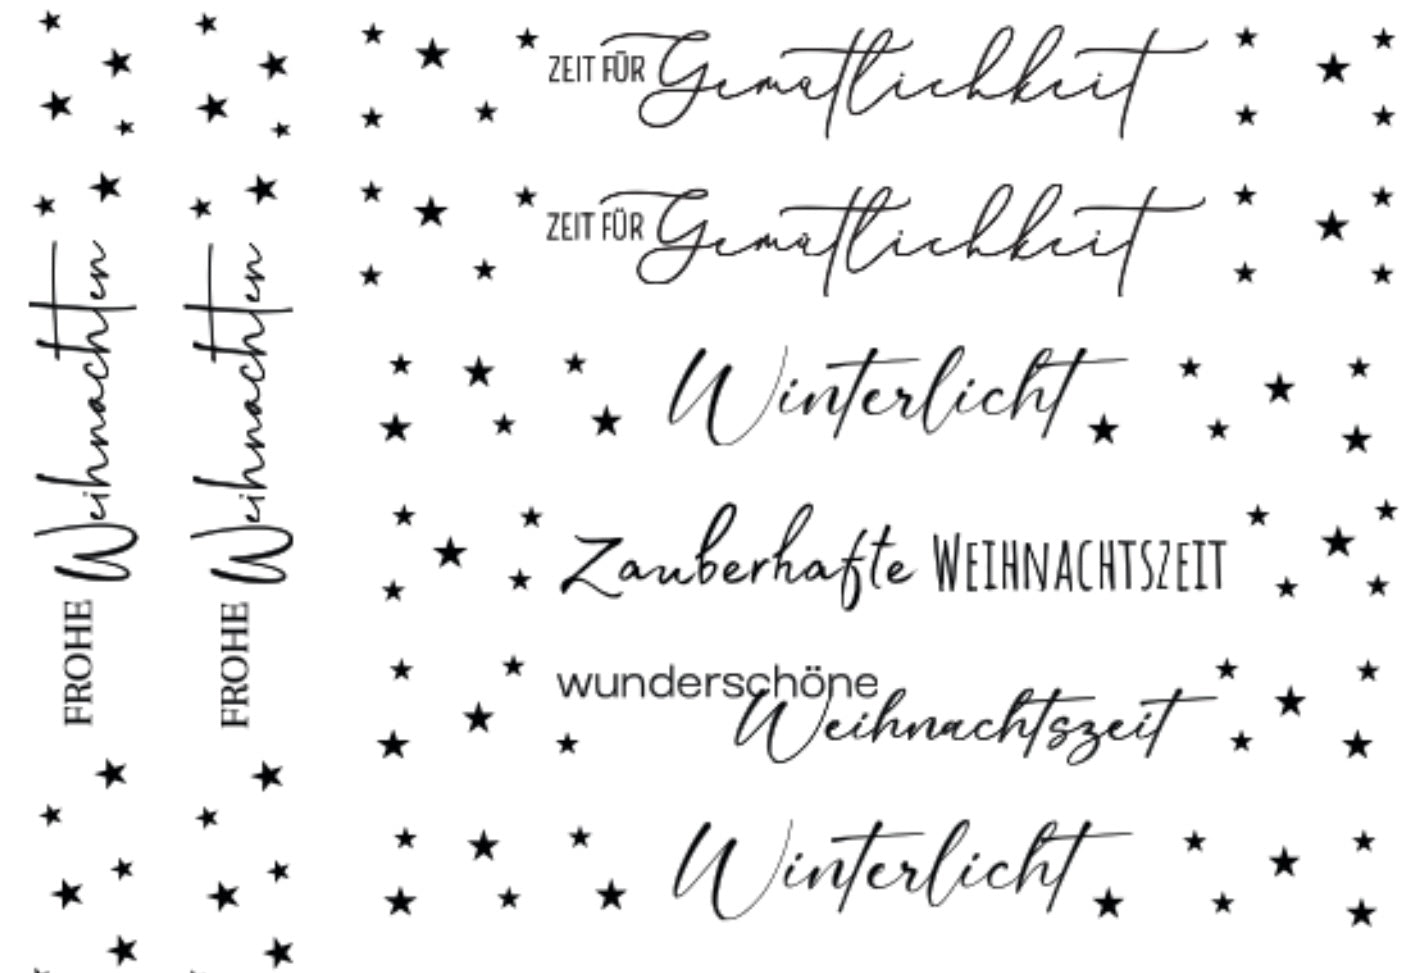 FROHE Weihnachten
FROHE Weihnachten
ZEIT FÜR Gemütlichkeit
ZEIT FÜR Gemütlichkeit
Winterlicht
Zauberhafte WEIHNACHTSZEIT
wunderschöne
Weihnachtszeit
Winterlicht